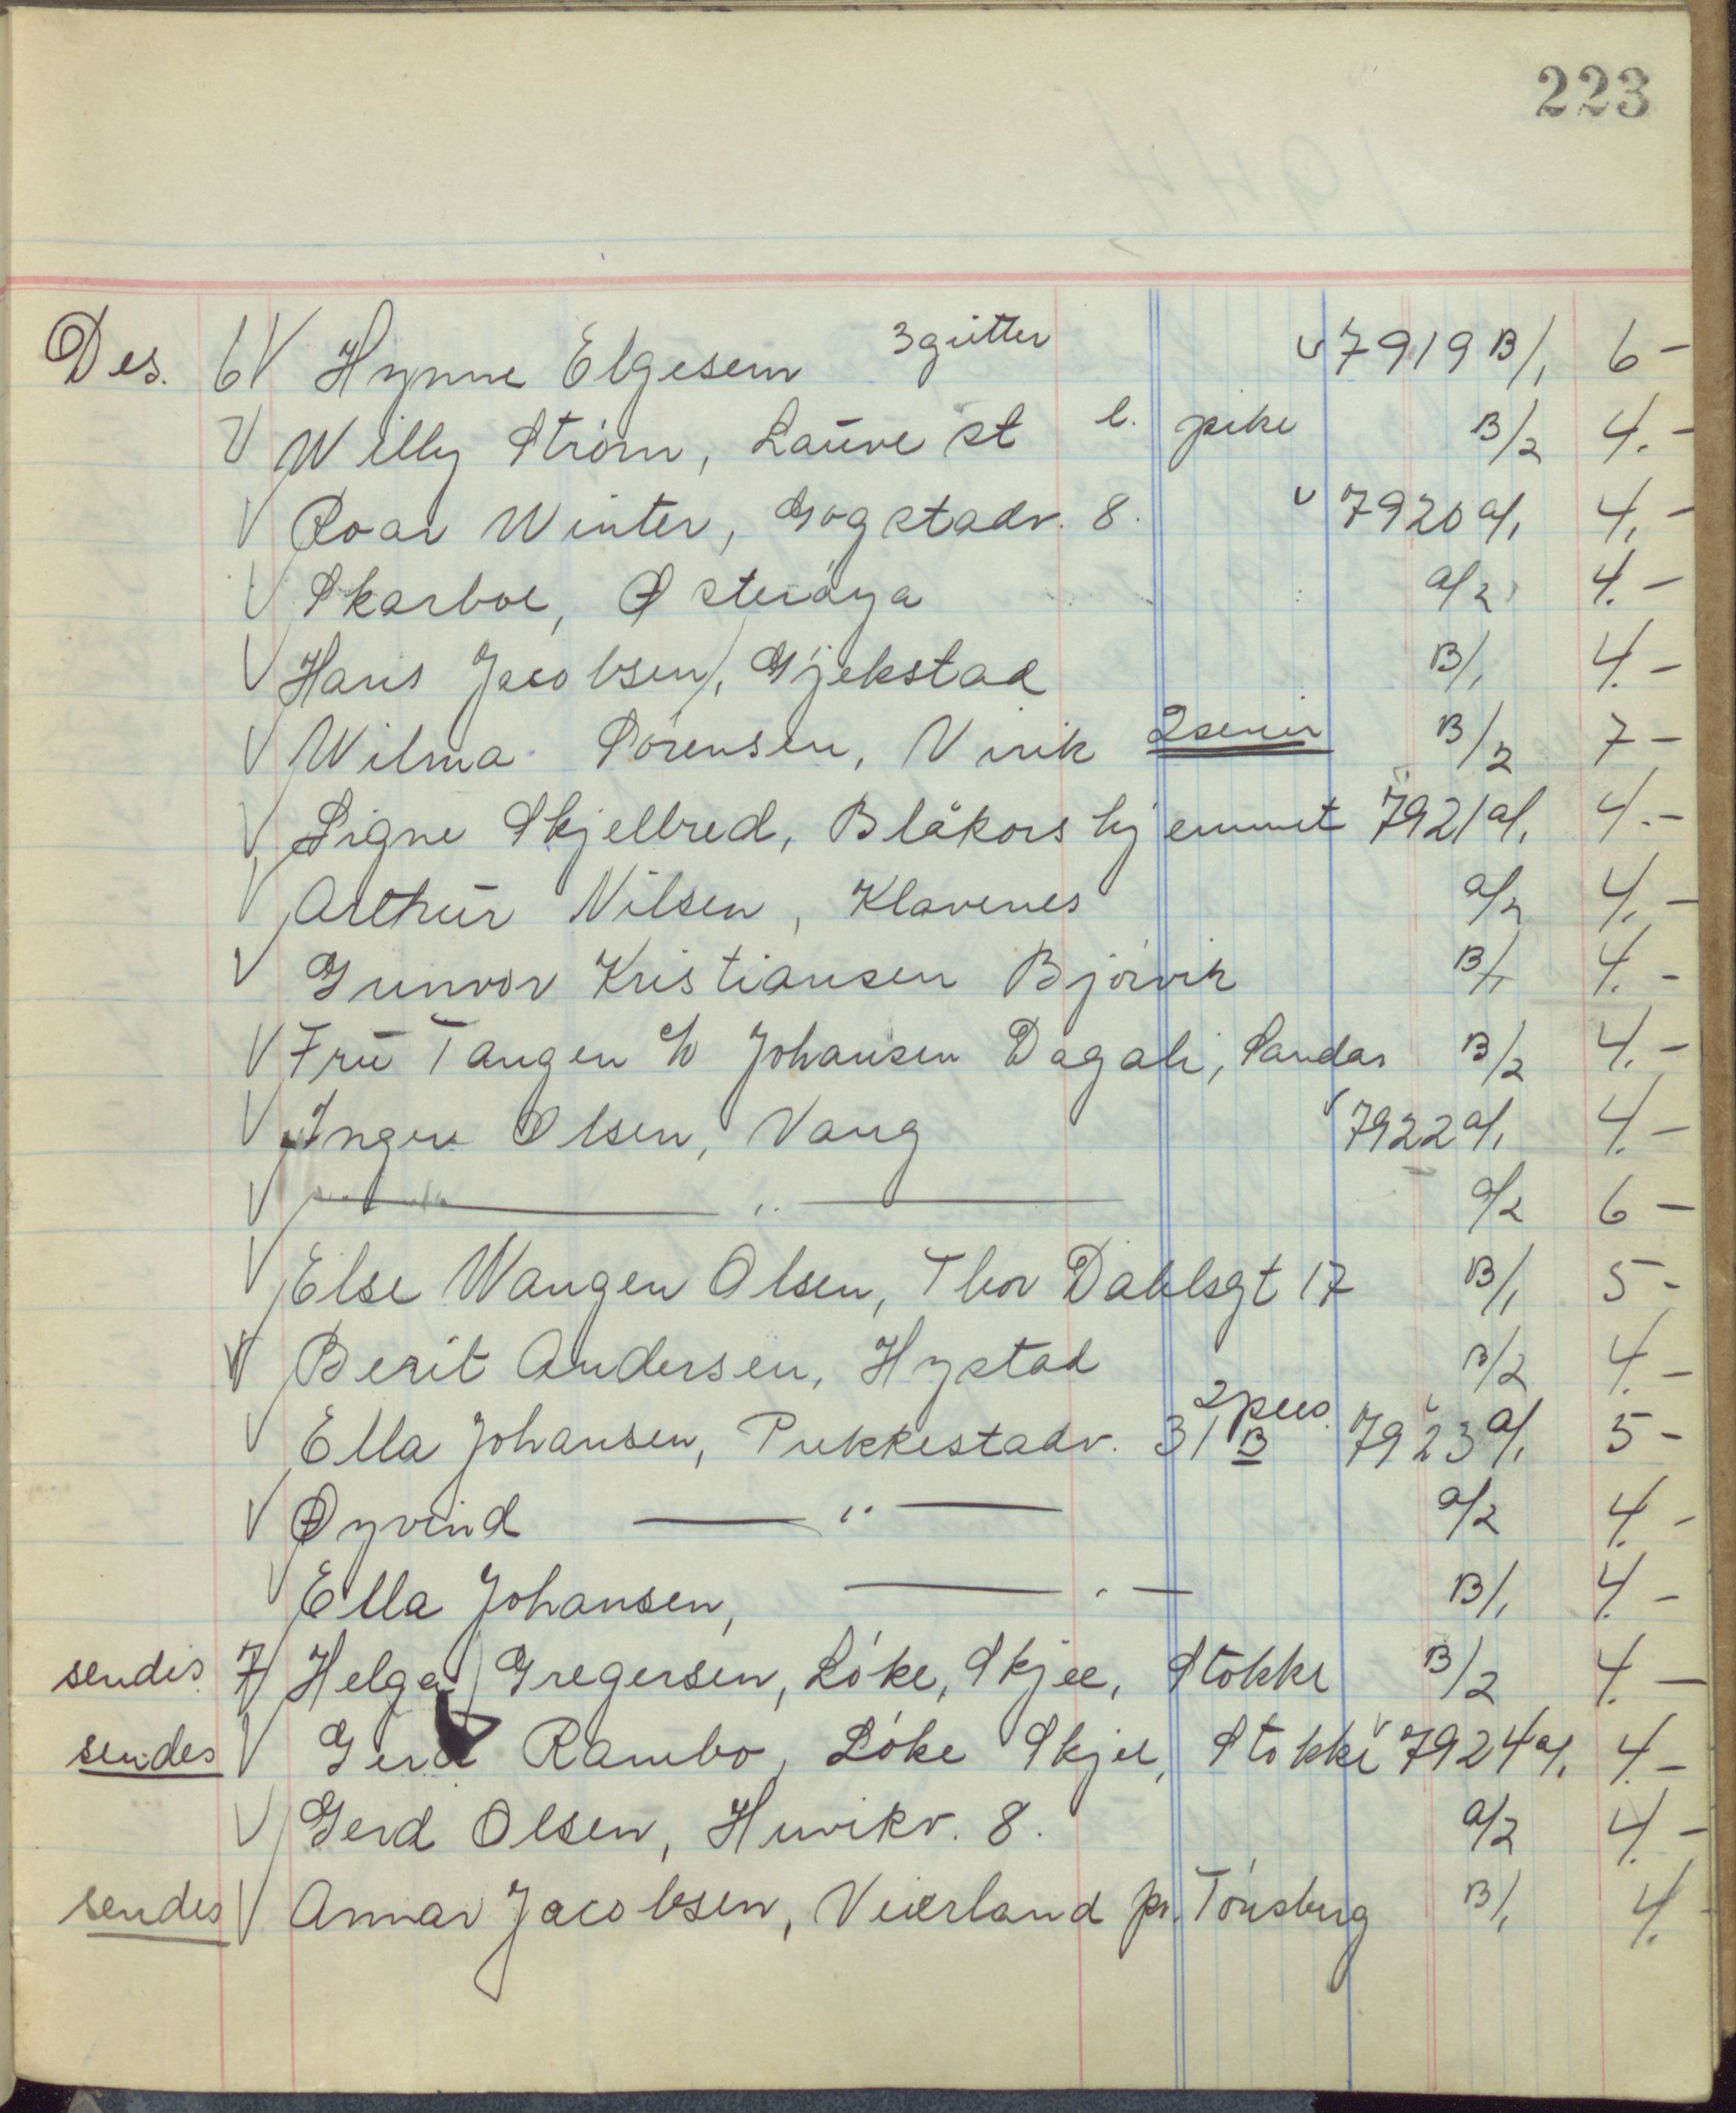 223
Des. 6 V Hynne Elgesem 3 gutter v 7919 B/1 6 -
V Willy Strøm, Lauve st l. pike B/2 4. -
V Roar Winter, Gogstadv. 8. v 7920 a/1 4. -
V Skarboe, Østerøya a/2 4. -
V Hans Jacobsen, Gjekstad B/1 4. -
V Wilma Sørensen, Virik 2 serier B/2 7 -
V Signe Skjelbred, Blåkorshjemmet v 7921 a/1 4. -
V Arthur Nilsen, Klavenes a/2 4. -
V Gunvor Kristiansen Bjørvik B/1 4. -
V Fru Tangen c/o Johansen Dagali, Sandar B/2 4. -
V Inger Olsen, Vang v 7922 a/1 4. -
V —— " —— a/2 6 -
V Else Wangen Olsen, Thor Dahlsgt 17 B/1 5 -
V Berit Andersen, Hystad B/2 4. -
V Ella Johansen, Pukkestadv. 31 B 2 pers. v 7923 a/1 5 -
V Øyvind —— " —— a/2 4. -
V Ella Johansen, —— " —— B/1 4. -
sendes 7 V Helga Gregersen, Løke, Skjee, Stokke B/2 4. -
sendes V Gerd Rambo, Løke Skjee, Stokke v 7924 a/1 4. -
V Gerd Olsen, Huvikv. 8. a/2 4. -
sendes V Annar Jacobsen, Veierland pr. Tønsberg B/1 4.